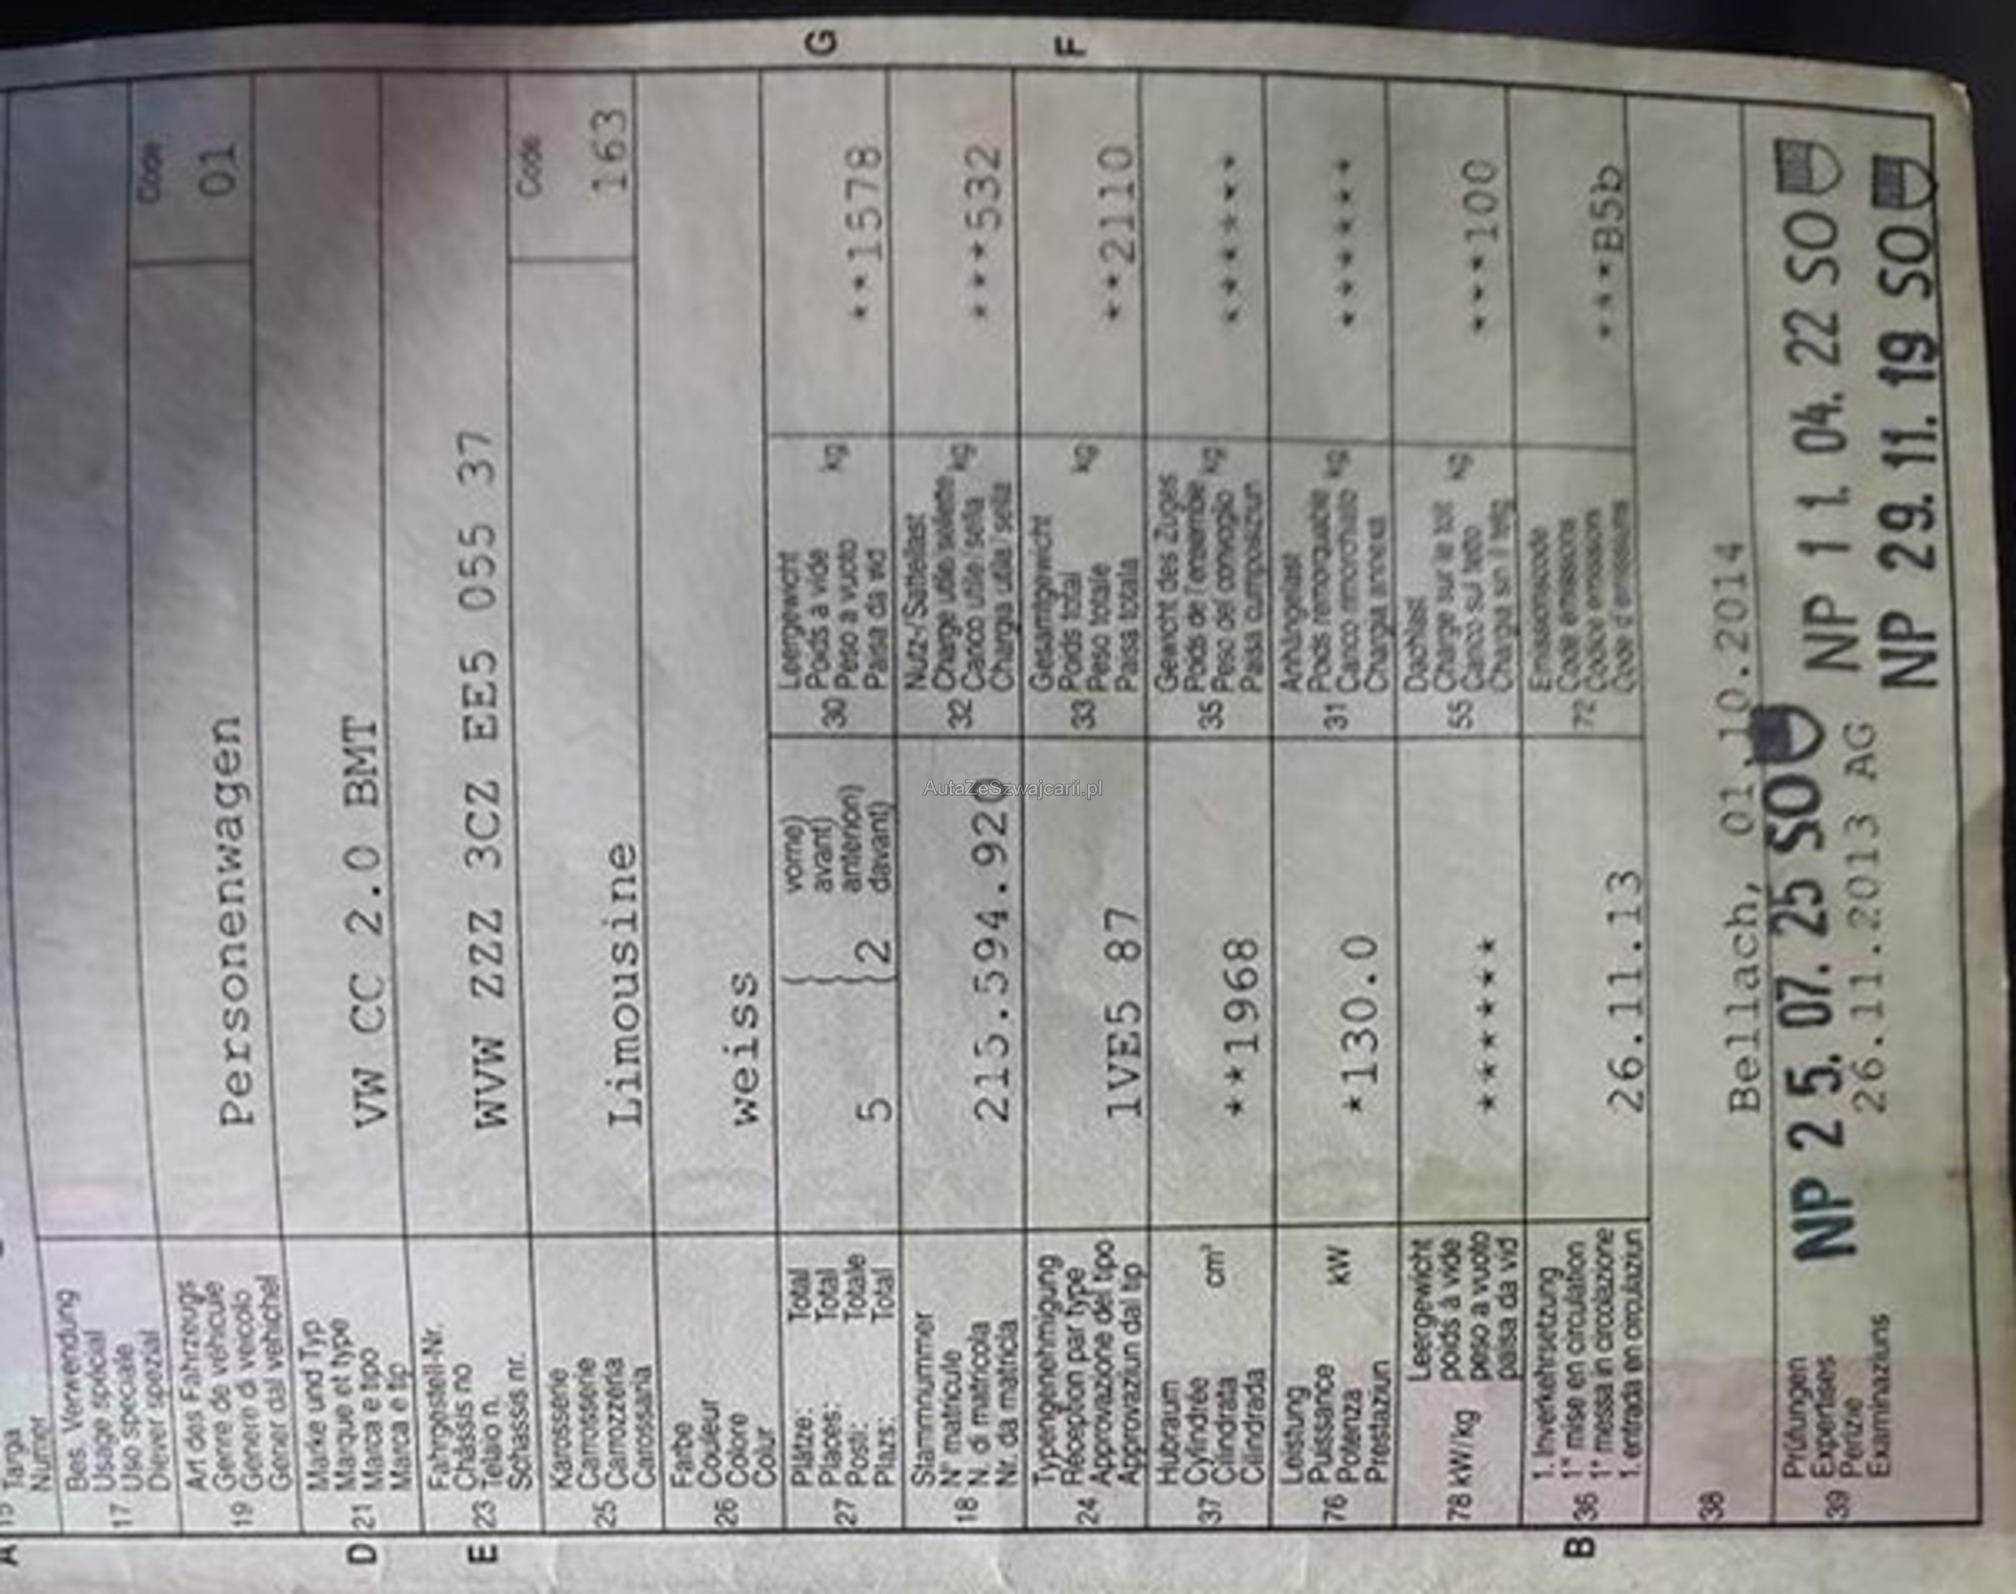 A 15 Targa
Numer
17 Bes. Verwendung
Usage spécial
Uso speciale
Diever spezial
19 Art des Fahrzeugs
Genre de véhicule
Genere di veicolo
Gener dal vehichel
Personenwagen
Code
01
D 21 Marke und Typ
Marque et type
Marca e tipo
Marca e tip
VW CC 2.0 BMT
E 23 Fahrgestell-Nr.
Châssis no
Telaio n.
Schassis nr.
WVW ZZZ 3CZ EE5 055 37
25 Karosserie
Carrosserie
Carrozzeria
Carossaria
Limousine
Code
163
26 Farbe
Couleur
Colore
Colur
weiss
27 Plätze: Total
Places: Total
Posti: Totale
Plazs: Total
5
vorne)
avant)
anteriori)
davant)
2
30 Leergewicht
Poids à vide
Peso a vuoto
Paisa da vid
kg
**1578
G
18 Stammnummer
N° matricule
N. di matricola
Nr. da matricla
215.594.920
32 Nutz-/Sattellast
Charge utile/sellette
Carico utile/sella
Chargia utila/sella
kg
***532
24 Typengenehmigung
Réception par type
Approvazione del tipo
Approvaziun dal tip
1VE5 87
33 Gesamtgewicht
Poids total
Peso totale
Paisa totala
kg
**2110
F
37 Hubraum
Cylindrée
Cilindrata
Cilindrada
cm³
**1968
35 Gewicht des Zuges
Poids de l'ensemble
Peso del convoglio
Paisa cumposiziun
kg
*******
76 Leistung
Puissance
Potenza
Prestaziun
kW
*130.0
31 Anhängelast
Poids remorquable
Carico rimorchiato
Chargia annexa
kg
*******
78 kW/kg Leergewicht
poids à vide
peso a vuoto
paisa da vid
*******
55 Dachlast
Charge sur le toit
Carico sul tetto
Chargia sin il tetg
kg
***100
B 36 1. Inverkehrsetzung
1re mise en circulation
1a messa in circolazione
1. entrada en circulaziun
26.11.13
72 Emissionscode
Code émissions
Codice emissioni
Code d'emissiuns
***B5b
38
Bellach, 01.10.2014
39 Prüfungen
Expertises
Perizie
Examinaziuns
NP 25. 07. 25 SO
NP 11. 04. 22 SO
26.11.2013 AG
NP 29. 11. 19 SO
AutaZeSzwajcarii.pl